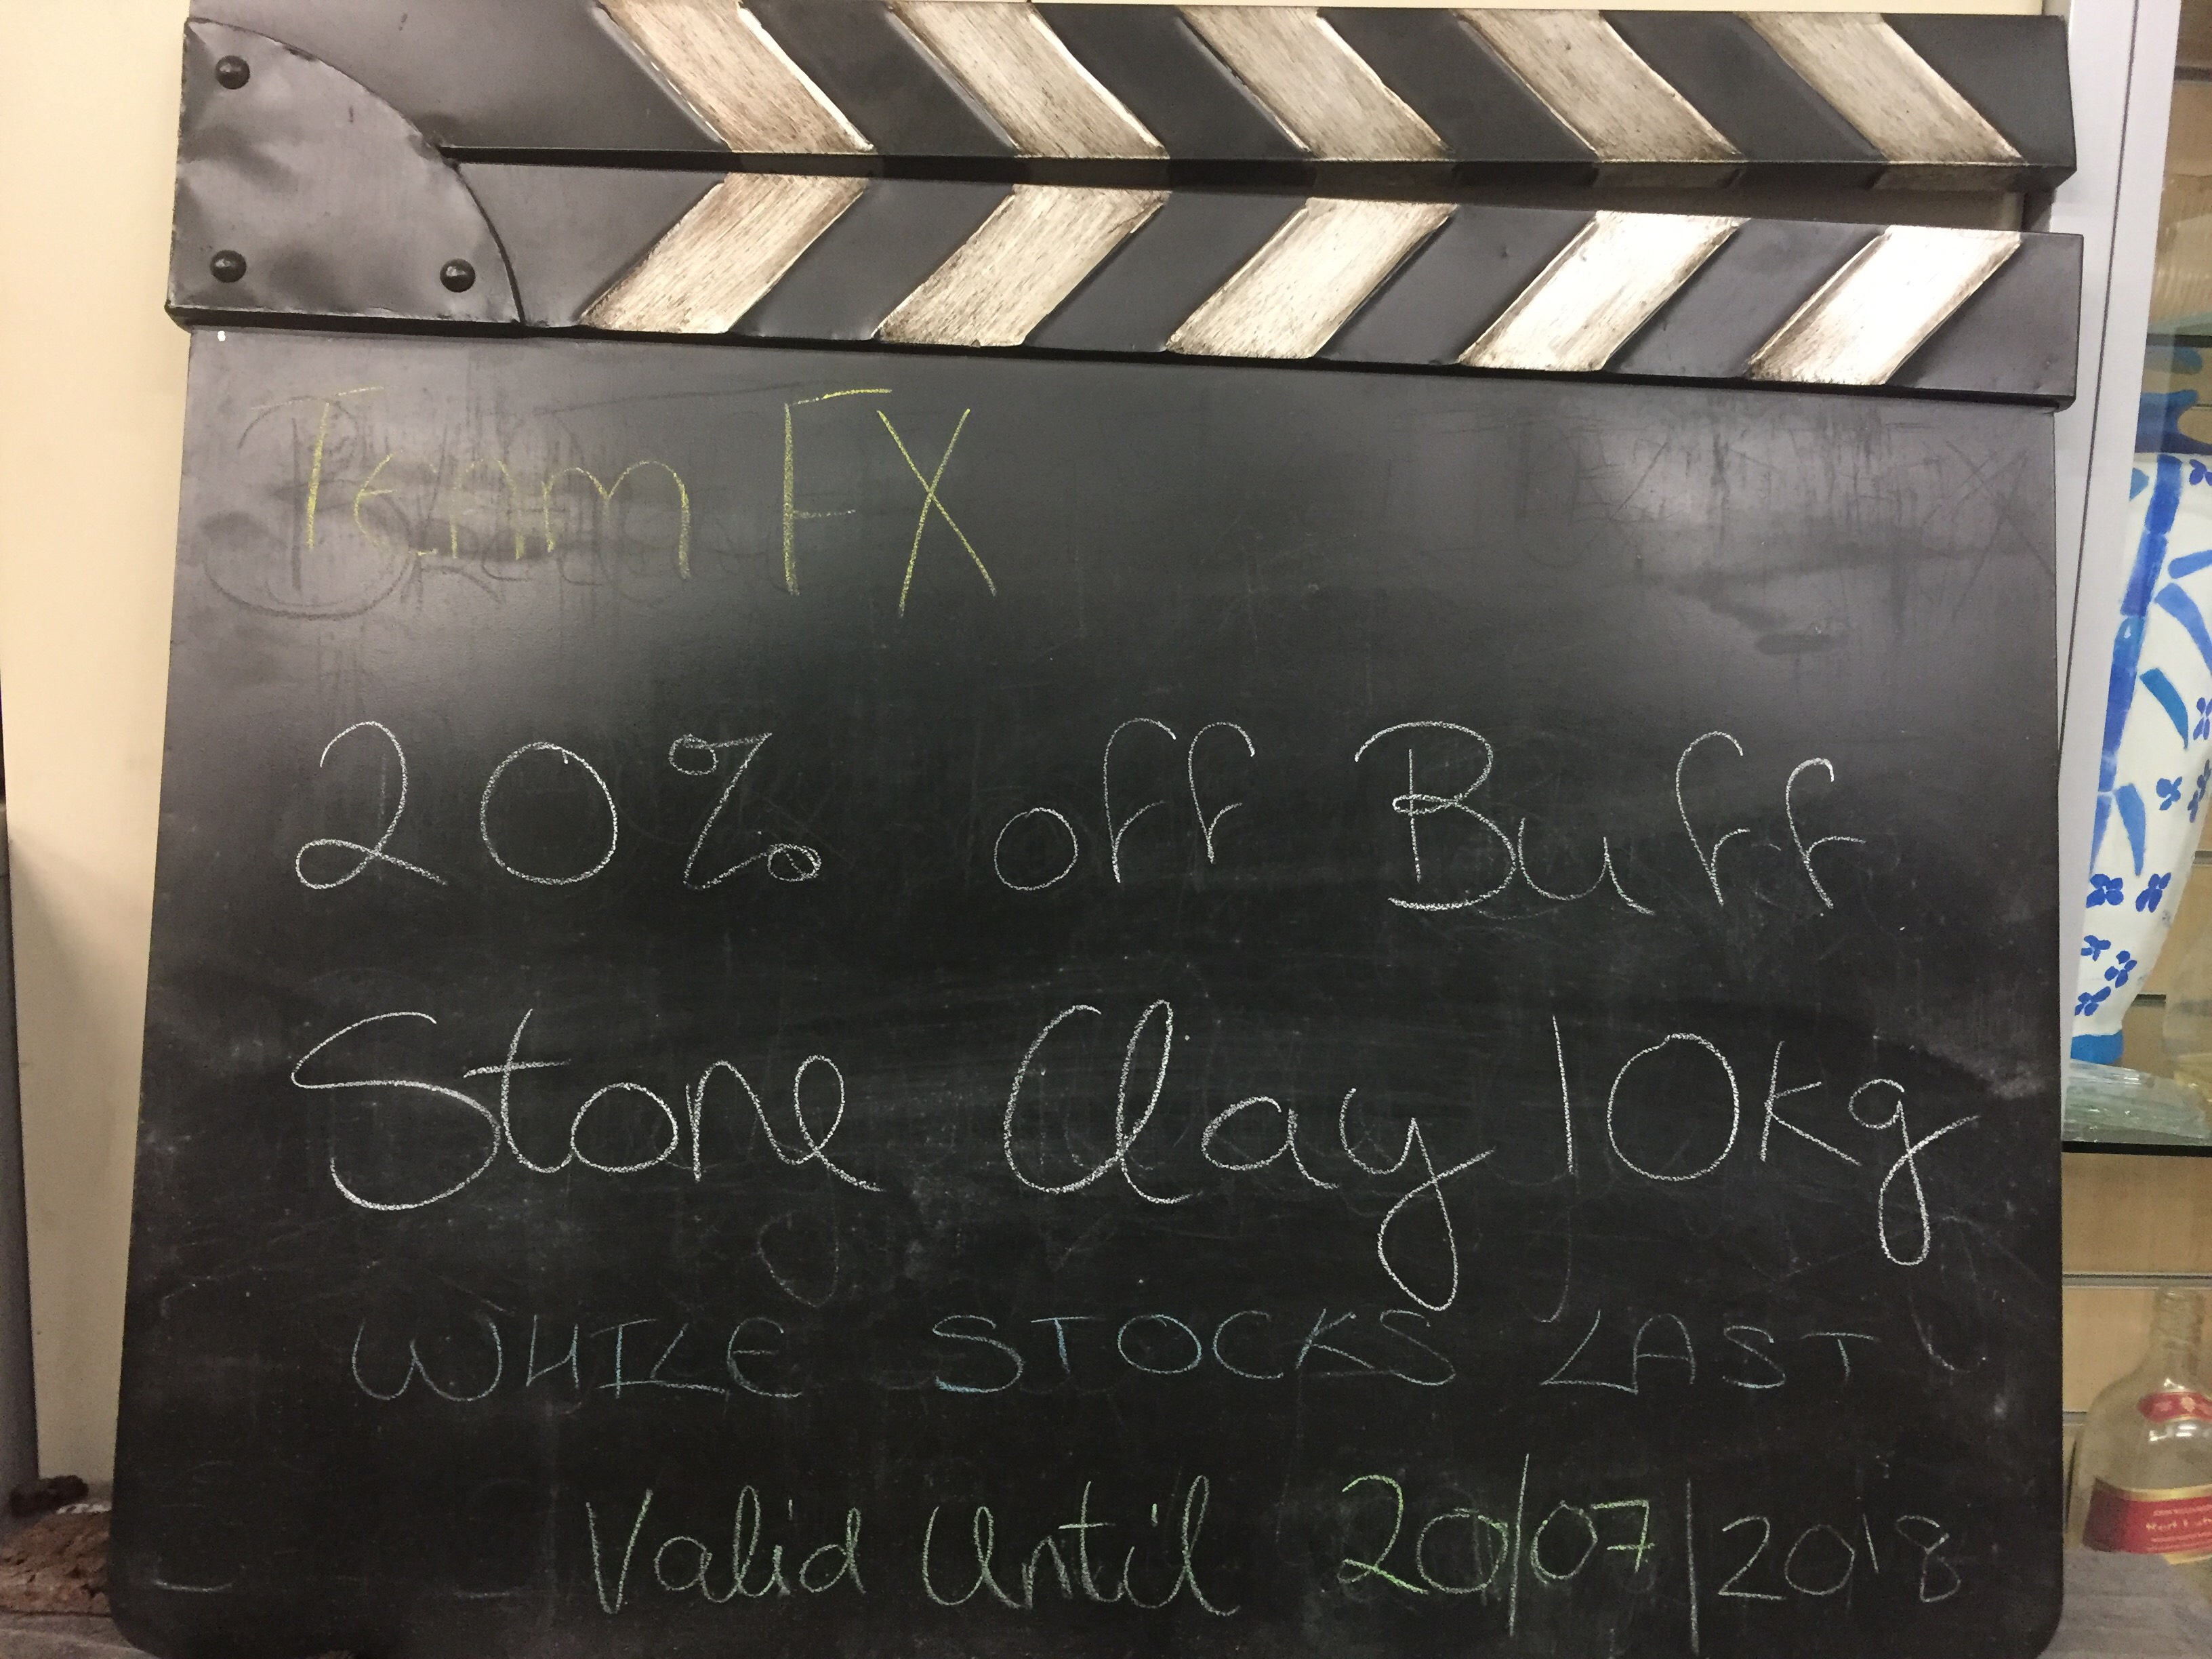 Team FX
20% off Buff
Stone Clay 10kg
WHILE STOCKS LAST
Valid Until 20/07/2018
Red